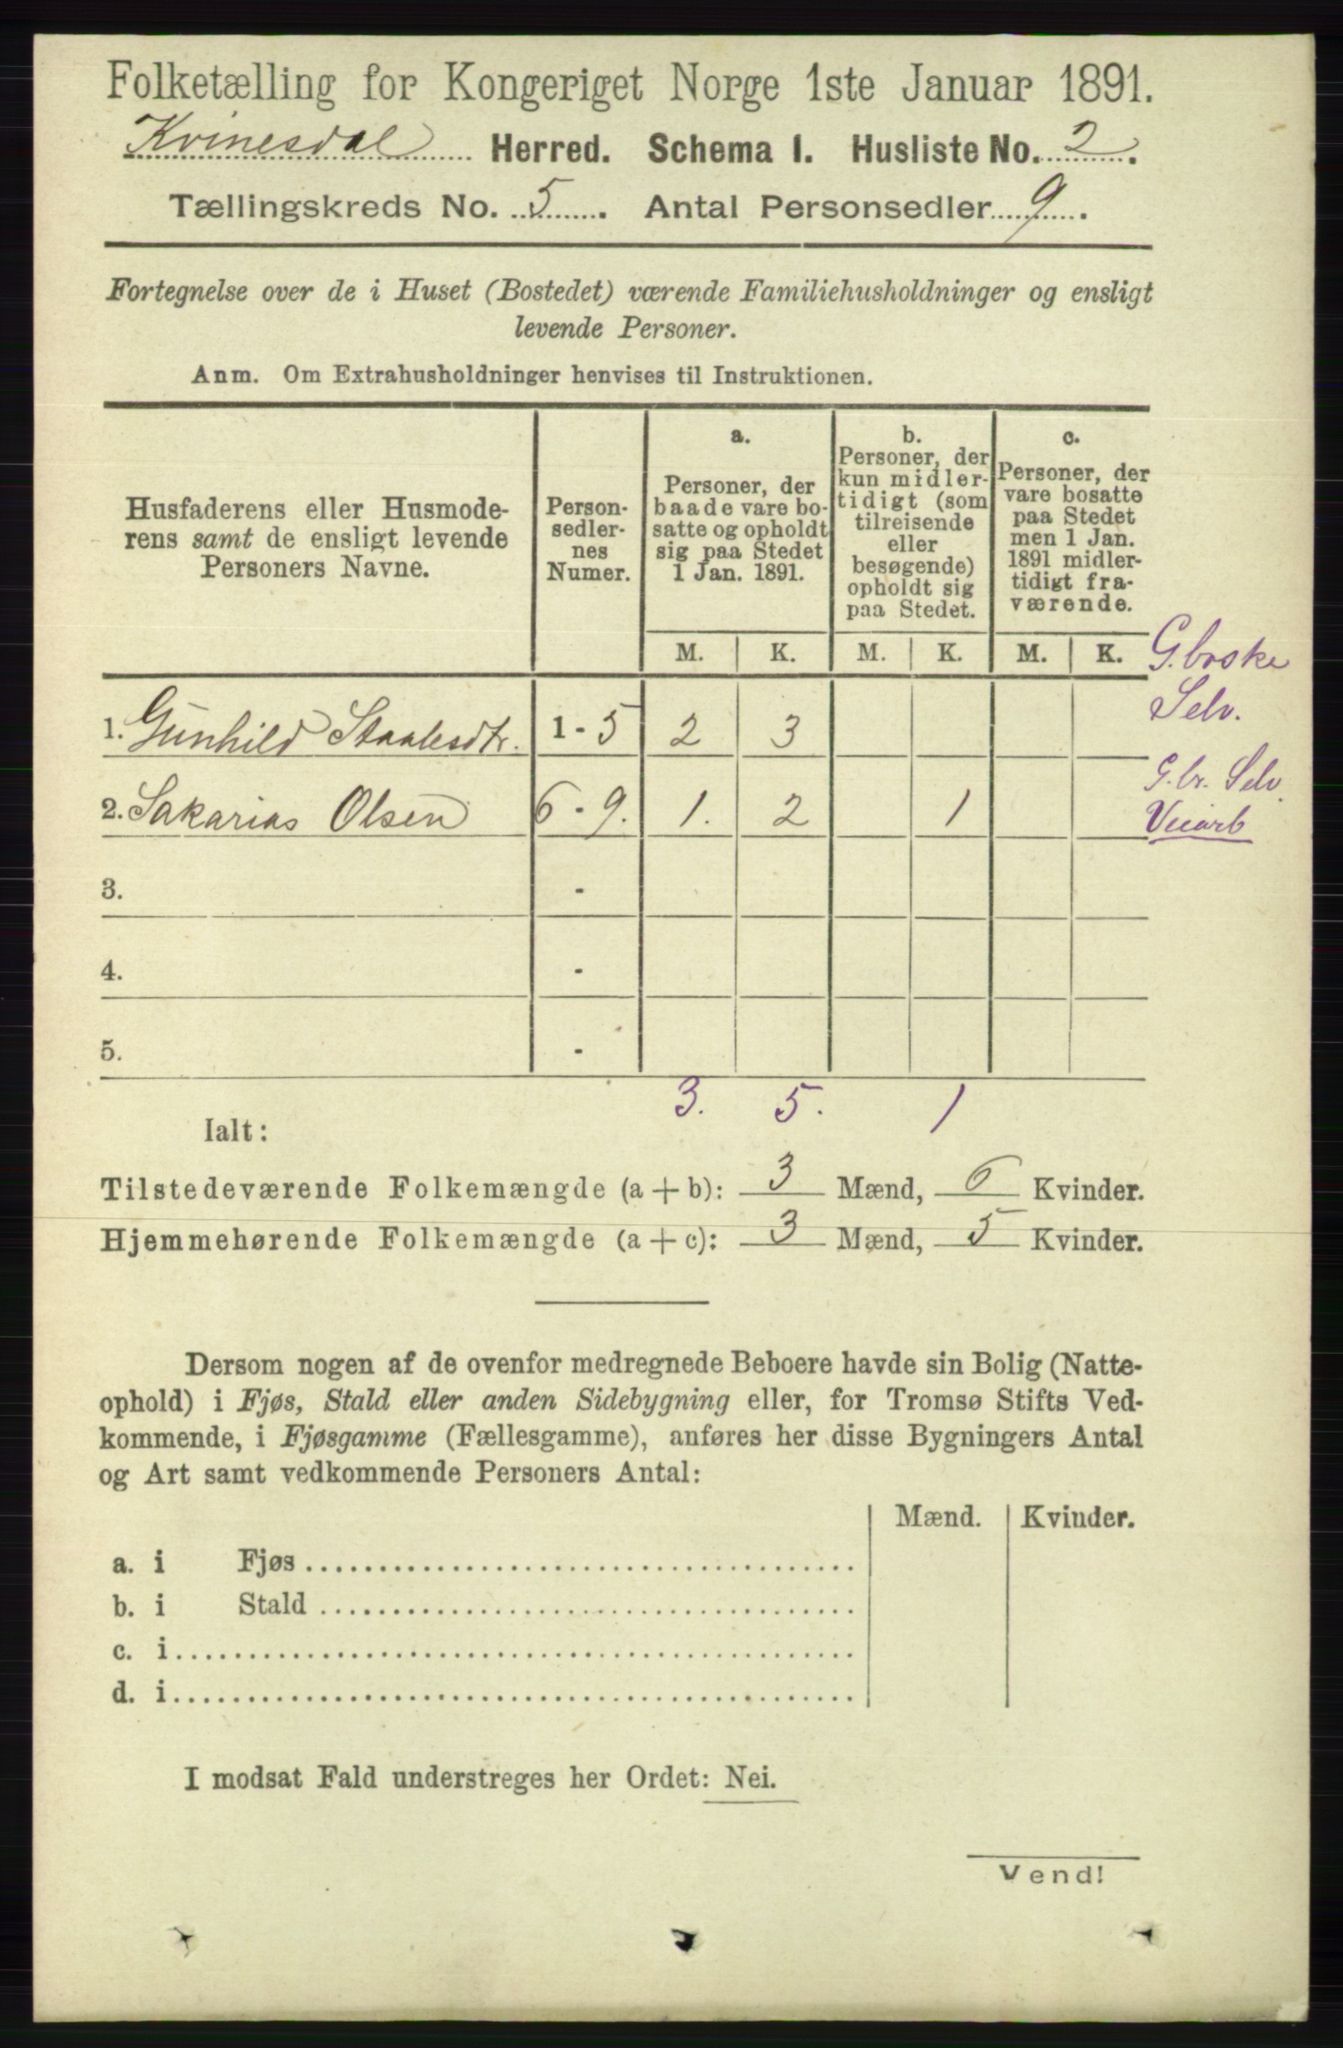 Folketælling for Kongeriget Norge 1ste Januar 1891.
Kvinesdal Herred. Schema 1. Husliste No. 2.
Tællingskreds No. 5. Antal Personsedler 9.
Fortegnelse over de i Huset (Bostedet) værende Familiehusholdninger og ensligt
levende Personer.
Anm. Om Extrahusholdninger henvises til Instruktionen.
Husfaderens eller Husmode-
rens samt de ensligt levende
Personers Navne.
Person-
sedler-
nes
Numer.
a.
Personer, der
baade vare bo-
satte og opholdt
sig paa Stedet
1 Jan. 1891.
b.
Personer, der
kun midler-
tidigt (som
tilreisende
eller
besøgende)
opholdt sig
paa Stedet.
c.
Personer, der
vare bosatte
paa Stedet
men 1 Jan.
1891 midler-
tidigt fra-
værende.
M. K. M. K. M. K.
G.brske
Selv.
1. Gunhild Staalesdtr. 1 - 5 2 3
G.br. Selv.
2. Sakarias Olsen 6 - 9. 1. 2 1
Veiarb
3. -
4. -
5. -
3. 5. 1
Ialt:
Tilstedeværende Folkemængde (a + b): 3 Mænd, 6 Kvinder.
Hjemmehørende Folkemængde (a + c): 3 Mænd, 5 Kvinder.
Dersom nogen af de ovenfor medregnede Beboere havde sin Bolig (Natte-
ophold) i Fjøs, Stald eller anden Sidebygning eller, for Tromsø Stifts Ved-
kommende, i Fjøsgamme (Fællesgamme), anføres her disse Bygningers Antal
og Art samt vedkommende Personers Antal:
Mænd. Kvinder.
a. i Fjøs
b. i Stald
c. i
d. i
I modsat Fald understreges her Ordet: Nei.
Vend!